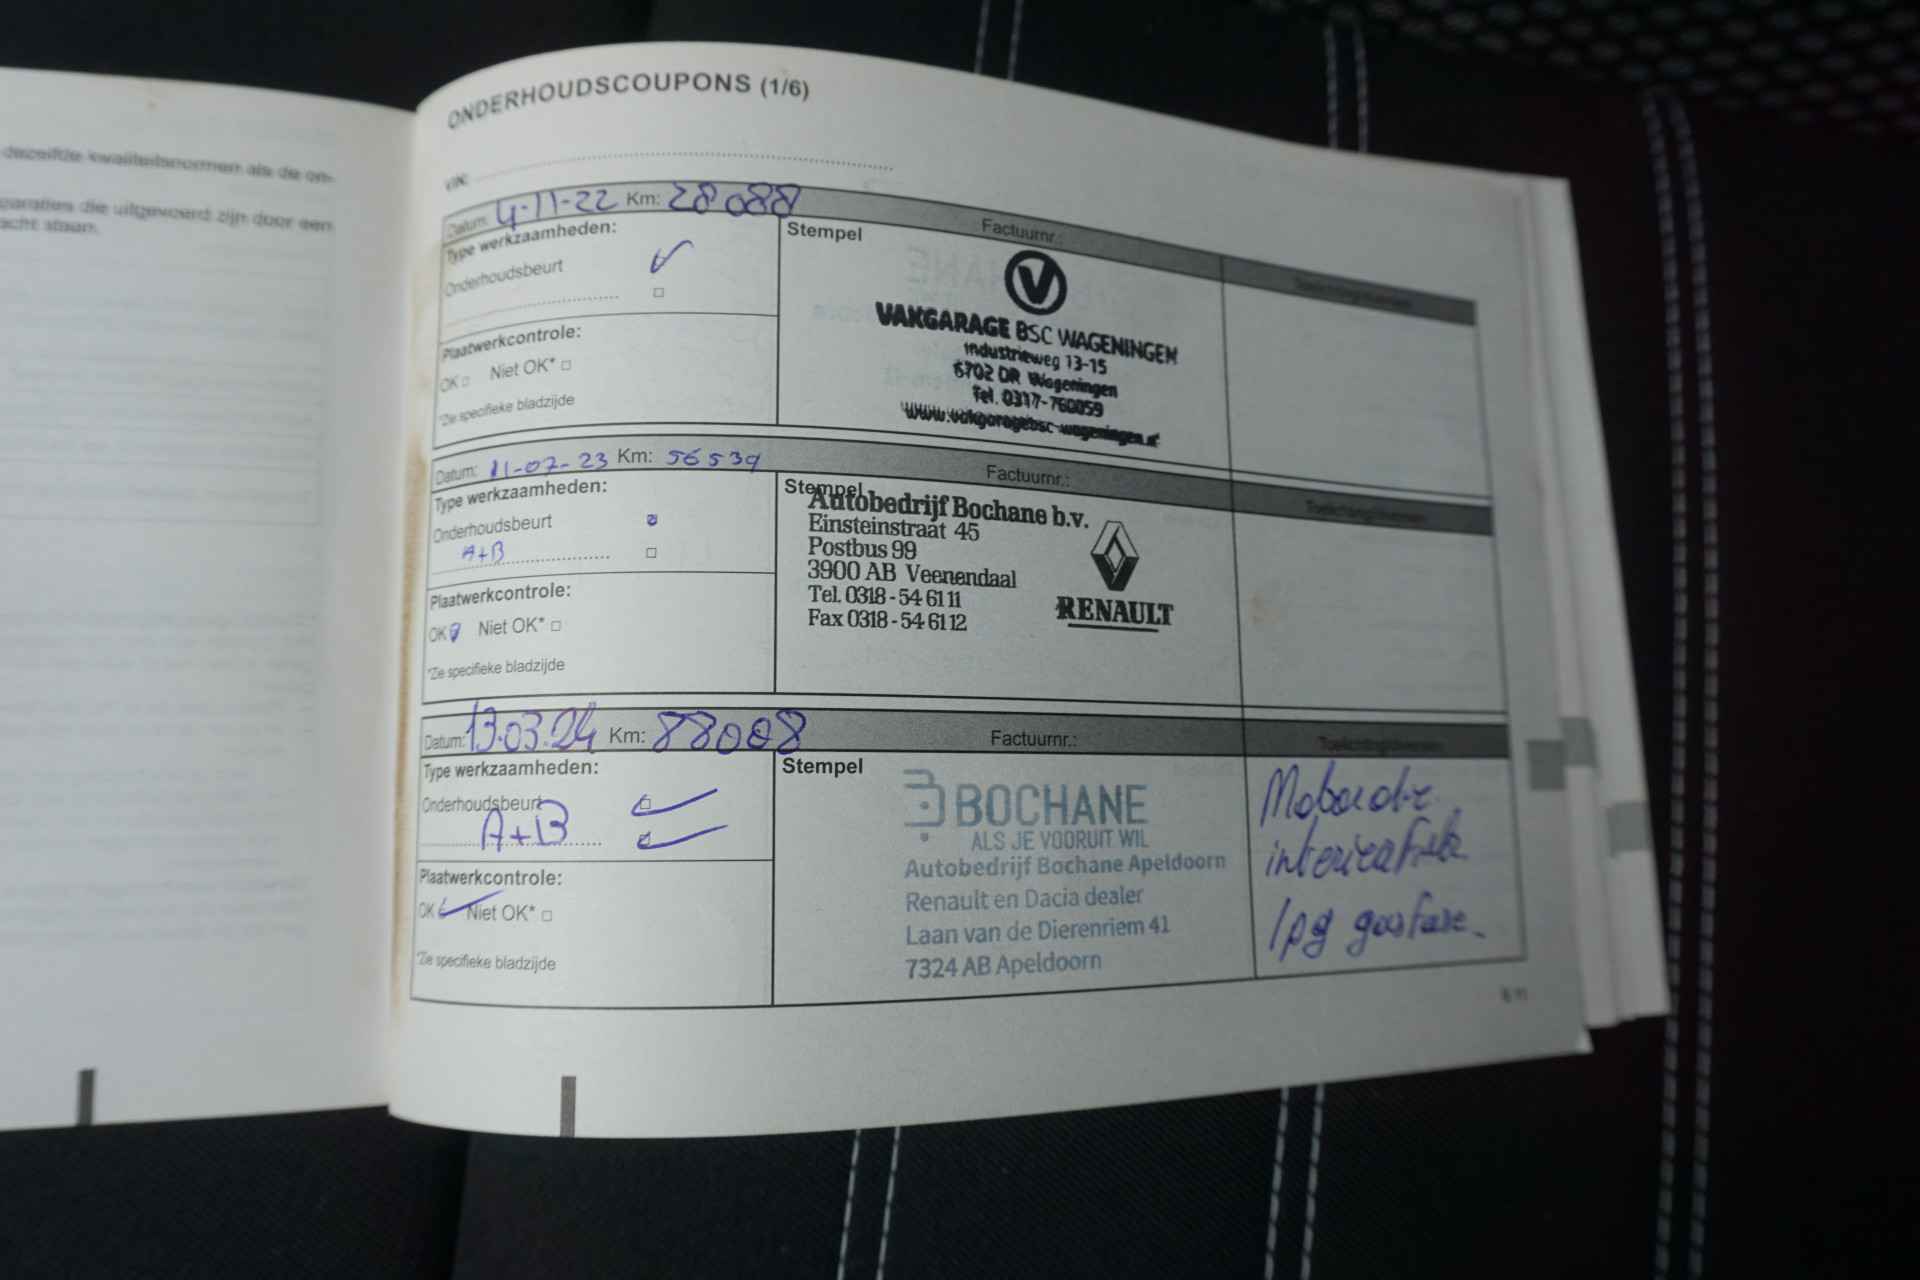 dezelfde kwaliteitsnormen als de on-
paraties die uitgevoerd zijn door een
acht staan.
ONDERHOUDSCOUPONS (1/6)
VIN:
Datum: 4-11-22 Km: 28088 Factuurnr.:
Type werkzaamheden:
Onderhoudsbeurt
Plaatwerkcontrole:
OK Niet OK*
*Zie specifieke bladzijde
Stempel
V
VAKGARAGE BSC WAGENINGEN
Industrieweg 13-15
6702 DR Wageningen
Tel. 0317-760059
www.vakgaragebsc-wageningen.nl
Datum: 11-07-23 Km: 56539 Factuurnr.:
Type werkzaamheden:
Onderhoudsbeurt
A+B
Plaatwerkcontrole:
OK Niet OK*
*Zie specifieke bladzijde
Stempel
Autobedrijf Bochane b.v.
Einsteinstraat 45
Postbus 99
3900 AB Veenendaal
Tel. 0318-54 61 11
Fax 0318-54 61 12
RENAULT
Datum: 13.03.24 Km: 88008 Factuurnr.:
Type werkzaamheden:
Onderhoudsbeurt
A+B
Plaatwerkcontrole:
OK Niet OK*
*Zie specifieke bladzijde
Stempel
BOCHANE
ALS JE VOORUIT WIL
Autobedrijf Bochane Apeldoorn
Renault en Dacia dealer
Laan van de Dierenriem 41
7324 AB Apeldoorn
lpg gasfase.